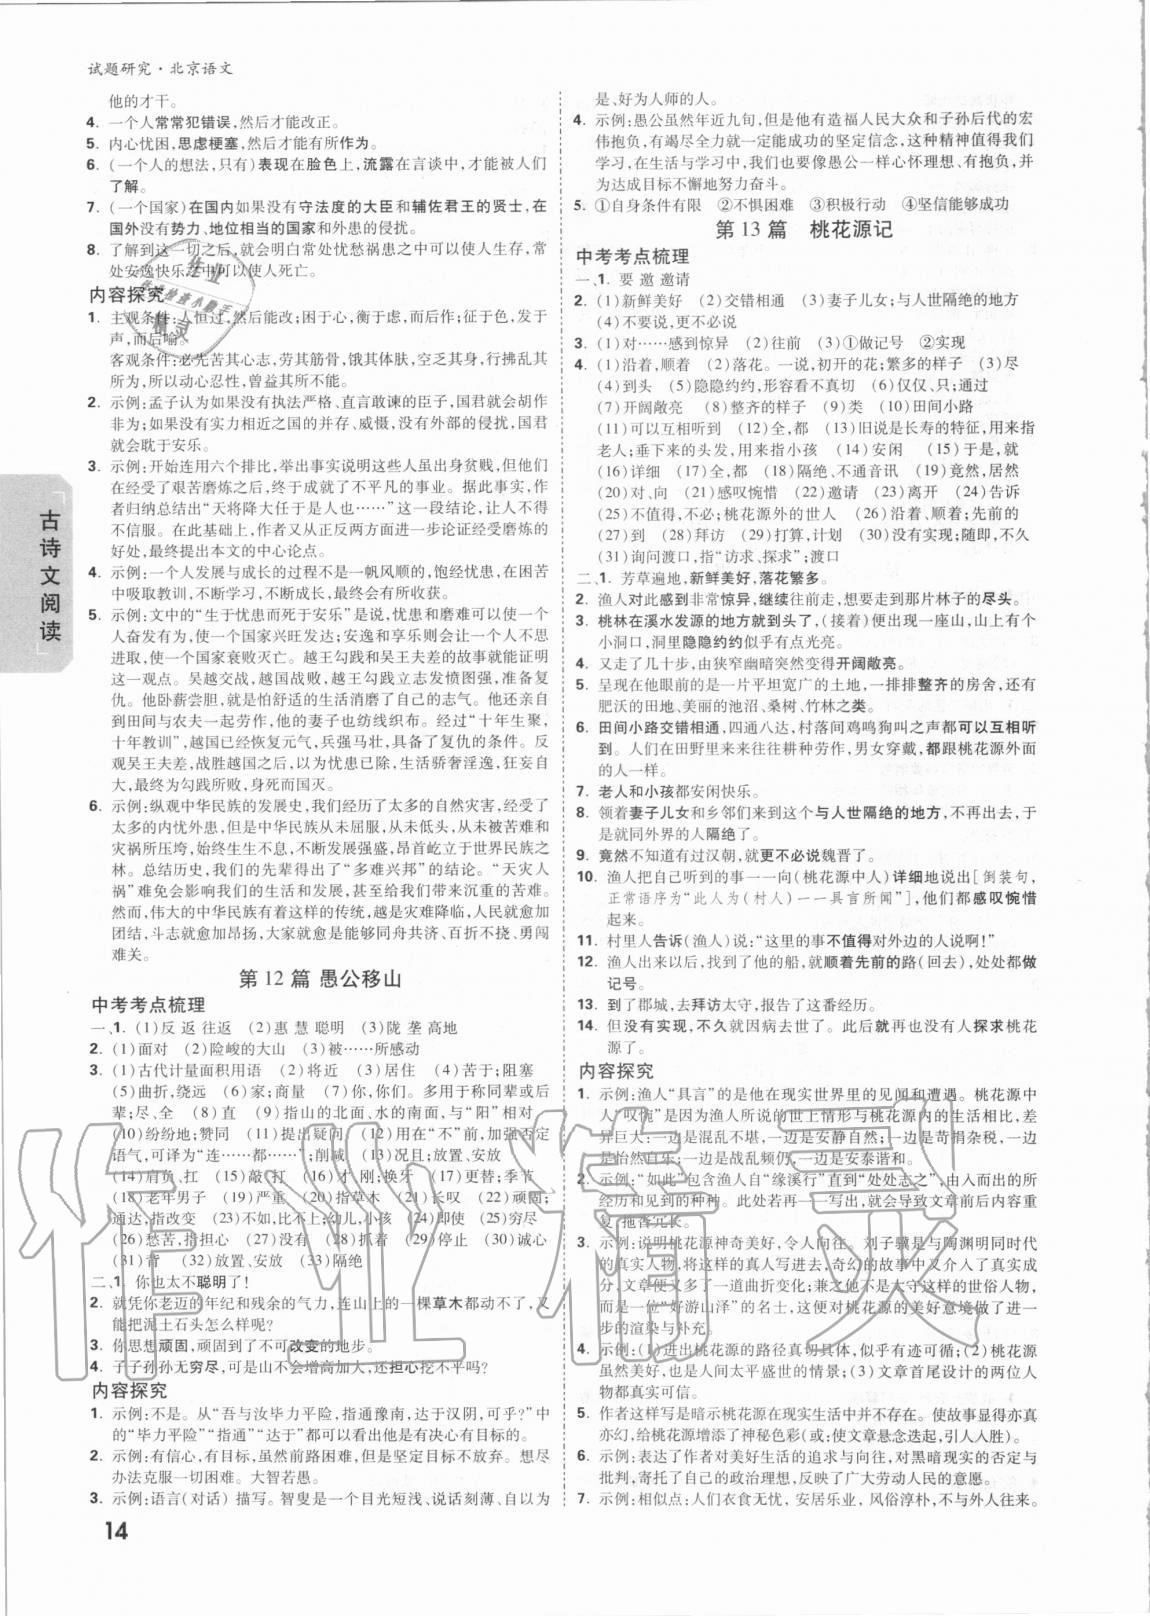 试题研究·北京语文
他的才干。
4. 一个人常常犯错误,然后才能改正。
5. 内心忧困,思虑梗塞,然后才能有所作为。
6. (一个人的想法,只有)表现在脸色上,流露在言谈中,才能被人们
了解。
7. (一个国家)在国内如果没有守法度的大臣和辅佐君王的贤士,在
国外没有势力、地位相当的国家和外患的侵扰。
8. 了解到这一切之后,就会明白常处忧愁祸患之中可以使人生存,常
处安逸快乐之中可以使人死亡。
内容探究
1. 主观条件:人恒过,然后能改;困于心,衡于虑,而后作;征于色,发于
声,而后喻。
客观条件:必先苦其心志,劳其筋骨,饿其体肤,空乏其身,行拂乱其
所为,所以动心忍性,曾益其所不能。
2. 示例:孟子认为如果没有执法严格、直言敢谏的臣子,国君就会胡作
非为;如果没有实力相近之国的并存、威慑,没有外部的侵扰,国君
就会耽于安乐。
3. 示例:开始连用六个排比,举出事实说明这些人虽出身贫贱,但他们
在经受了艰苦磨炼之后,终于成就了不平凡的事业。据此事实,作
者归纳总结出“天将降大任于是人也……”这一段结论,让人不得
不信服。在此基础上,作者又从正反两方面进一步论证经受磨炼的
好处,最终提出本文的中心论点。
4. 示例:一个人发展与成长的过程不是一帆风顺的,饱经忧患,在困苦
中吸取教训,不断学习,不断成长,最终会有所收获。
5. 示例:文中的“生于忧患而死于安乐”是说,忧患和磨难可以使一个
人奋发有为,使一个国家兴旺发达;安逸和享乐则会让一个人不思
进取,使一个国家衰败灭亡。越王勾践和吴王夫差的故事就能证明
这一观点。吴越交战,越国战败,越王勾践立志发愤图强,准备复
仇。他卧薪尝胆,就是怕舒适的生活消磨了自己的志气。他还亲自
到田间与农夫一起劳作,他的妻子也纺线织布。经过“十年生聚,
十年教训”,越国已经恢复元气,兵强马壮,具备了复仇的条件。反
观吴王夫差,战胜越国之后,以为无忧患,从此不思进取,生活骄奢淫逸,
最终为勾践所败,身死而国灭。
6. 示例:纵观中华民族的发展史,我们经历了太多的自然灾害,经受了
太多的内忧外患,但是中华民族从未屈服,从未低头,从未被苦难和
灾祸所压垮,始终生生不息,不断发展强大,昂首屹立于世界民族之
林。总结历史,我们的先辈得出了“多难兴邦”的结论。“天灾人
祸”难免会影响我们的生活和发展,甚至给我们带来沉重的苦难。
然而,伟大的中华民族有着这样的传统,越是灾难降临,人民就愈加
团结,斗志就愈加昂扬,大家就愈是能够同舟共济、百折不挠、勇闯
难关。
第12篇 愚公移山
中考考点梳理
一、1. (1)反 返 往返 (2)惠 慧 聪明 (3)陇 垄 高地
2. (1)面对 (2)险峻的大山 (3)被……所感动
3. (1)古代计量面积用语 (2)将近 (3)居住 (4)苦于;阻塞
(5)曲折,绕远 (6)家;商量 (7)你,你们。多用于称同辈或后
辈 (8)直 (9)指山的北面、水的南面,与“阳”相对
(10)纷纷地;赞同 (11)提出疑问 (12)用在“不”前,加强否定
语气,可译为“连……都……”;削减 (13)况且;放置、安放
(14)肩负,扛 (15)敲,打 (16)才,刚;换牙 (17)更替;季节
(18)老年男子 (19)残余 (20)指草木 (21)长叹 (22)顽固;
通达;指改变 (23)不如,比不上;幼儿,小孩 (24)即使 (25)穷尽
(26)愁苦,指担心 (27)没有 (28)抓着 (29)停止 (30)诚心
(31)背 (32)放置、安放 (33)隔绝
二、1. 你也太不聪明了!
2. 就凭你老迈的年纪和残余的气力,连山上的一棵草木都动不了,又
能把泥土石头怎么样呢?
3. 你思想顽固,顽固到了不可改变的地步。
4. 子子孙孙无穷尽,可是山不会增高加大,还担心挖不平吗?
内容探究
1. 示例:不是。从“吾与汝毕力平险,指通豫南,达于汉阴,可乎?”中
的“毕力平险”“指通”“达于”都可以看出他是有决心有目标的。
2. 示例:有信心,有目标,虽然前路困难,但坚定目标不放弃。要多想
办法克服一切困难。大智若愚。
3. 示例:语言(对话)描写。智叟是一个目光短浅、说话刻薄、自以为
14
古诗文阅读
是、好为人师的人。
4. 示例:愚公虽然年近九旬,但他有造福人民大众和子孙后代的宏
伟抱负,有我们奋斗就一定能成功的坚定信念,这种精神值得我们
学习,在生活与学习中,我们也要像愚公一样心怀理想、有抱负,并
为达成目标不懈地努力奋斗。
5. ①自身条件有限 ②不惧困难 ③积极行动 ④坚信能够成功
第13篇 桃花源记
中考考点梳理
一、1. 要 邀 邀请
2. (1)新鲜美好 (2)交错相通 (3)妻子儿女;与人世隔绝的地方
(4)不要说,更不必说
3. (1)对……感到惊异 (2)往前 (3)①做记号 ②实现
4. (1)沿着,顺着 (2)落花。一说,初开的花;繁多的样子 (3)尽
(4)到头 (5)隐隐约约,形容看不真切 (6)仅仅、只;通过
(7)开阔敞亮 (8)整齐的样子 (9)类 (10)田间小路
(11)可以互相听到 (12)全,都 (13)旧说是长寿的特征,用来指
老人;垂下来的头发,用来指小孩 (14)安闲 (15)于是,就
(16)详细 (17)全,都 (18)隔绝、不通音讯 (19)竟然,居然
(20)对、向 (21)感叹惋惜 (22)邀请 (23)离开 (24)告诉
(25)不值得,不必;桃花源外的世人 (26)沿着、顺着;先前的
(27)到 (28)拜访 (29)打算,计划 (30)没有实现;随即,不久
(31)询问渡口,指“访求、探求”;渡口
二、1. 芳草遍地,新鲜美好,落花繁多。
2. 渔人对此感到非常惊异,继续往前走,想要走到那片林子的尽头。
3. 桃林在溪水发源的地方就到头了,(接着)便出现一座山,山上有个
小洞口,洞里隐隐约约似乎有点光亮。
4. 又走了几十步,由狭窄幽暗突然变得开阔敞亮。
5. 呈现在他眼前的是一片平坦宽广的土地,一排排整齐的房舍,还有
肥沃的田地、美丽的池沼、桑树、竹林之类。
6. 田间小路交错相通,四通八达,村落间鸡鸣狗叫之声都可以互相听
到。人们在田野里来来往往耕种劳作,男女穿戴,都跟桃花源外面
的人一样。
7. 老人和小孩都安闲快乐。
8. 领着妻子儿女和乡邻们来到这个与人世隔绝的地方,不再出去,于
是就同外界的人隔绝了。
9. 竟然不知道有过汉朝,就更不必说魏晋了。
10. 渔人把自己听到的事一一向(桃花源中人)详细地说出[倒装句,
正常语序为“此人为(村人)一一具言所闻”],他们都感叹惋惜
起来。
11. 村里人告诉(渔人)说:“这里的事不值得对外边的人说啊!”
12. 渔人出来以后,找到了他的船,就顺着先前的路(回去),处处都做
记号。
13. 到了郡城,去拜访太守,报告了这番经历。
14. 但没有实现,不久就因病去世了。此后就再也没有人探求桃花
源了。
内容探究
1. 示例:渔人“具言”的是他在现实世界里的见闻和遭遇。桃花源中
人“叹惋”是因为渔人所说的世上情形与桃花源内的生活相比,差
异巨大:一边是混乱不堪,一边是安静自然;一边是苛捐杂税,一边
是怡然自乐;一边是战乱频仍,一边是安泰谐和。
2. 示例:“如此”包含渔人自“缘溪行”直到“处处志之”,由入而出的所
经历和见到的种种。此处若再一一写出,就会导致文章前后内容重
复,拖沓冗长。
3. 示例:说明桃花源神奇美好,令人向往。刘子骥是与陶渊明同时代
的真实人物,将这样的真人写进去,奇幻的故事中又介入了真实成
分,文章便又多了一道曲折变化;兼之他不是太守这样的世俗人物,
而是一位“好游山泽”的名士,这便对桃花源的美好意境做了进一步
的渲染与补充。
4. 示例:(1)进出桃花源的路径真切具体,似乎有迹可循;(2)桃花源
虽然美好,却是人间太平盛世的情景;(3)文章首尾设计的两位人
物都真实可信。
5. 作者这样写是暗示桃花源在现实生活中并不存在。使故事显得亦真
亦幻,给桃花源增添了神秘色彩(或:使文章悬念迭起,引人入胜)。
6. 示例:表达了作者对美好生活的追求与向往、对黑暗现实的否定与
批判,寄托了自己的政治理想,反映了广大劳动人民的意愿。
7. 示例:相似点:人们衣食无忧,安居乐业,风俗淳朴,不与外人往来。
作业精灵